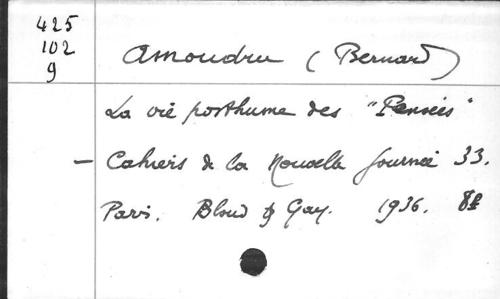 425
102
9
Amoudru (Bernard)
La vie posthume des "Pensées"
- Cahiers de la Nouvelle Journée 33.
Paris. Bloud & Gay. 1936. 8º